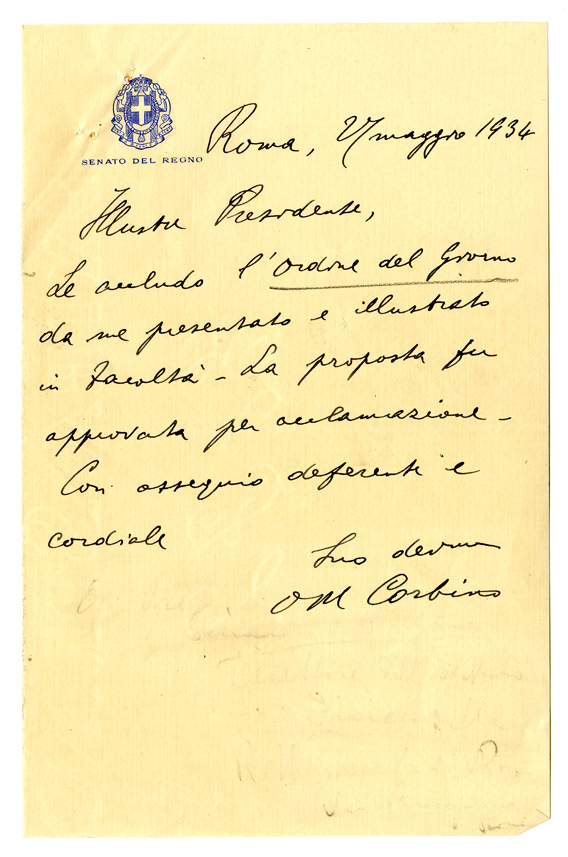 SENATO DEL REGNO
Roma, 27 maggio 1934
Illustre Presidente,
Le accludo l'Ordine del Giorno
da me presentato e illustrato
in Facoltà - La proposta fu
approvata per acclamazione -
Con ossequio deferente e
cordiale
Suo devmo
OM Corbino